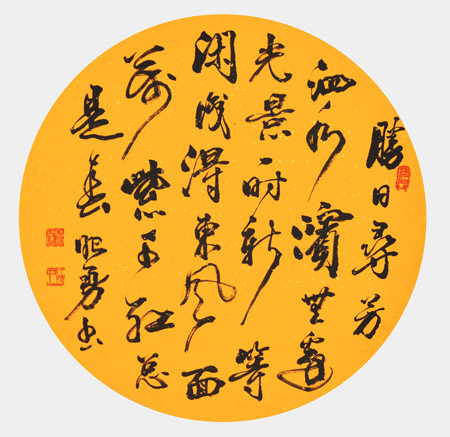 勝日尋芳
泗水濱無邊
光景一時新等
閑識得東風面
萬紫千紅總
是春 勇書